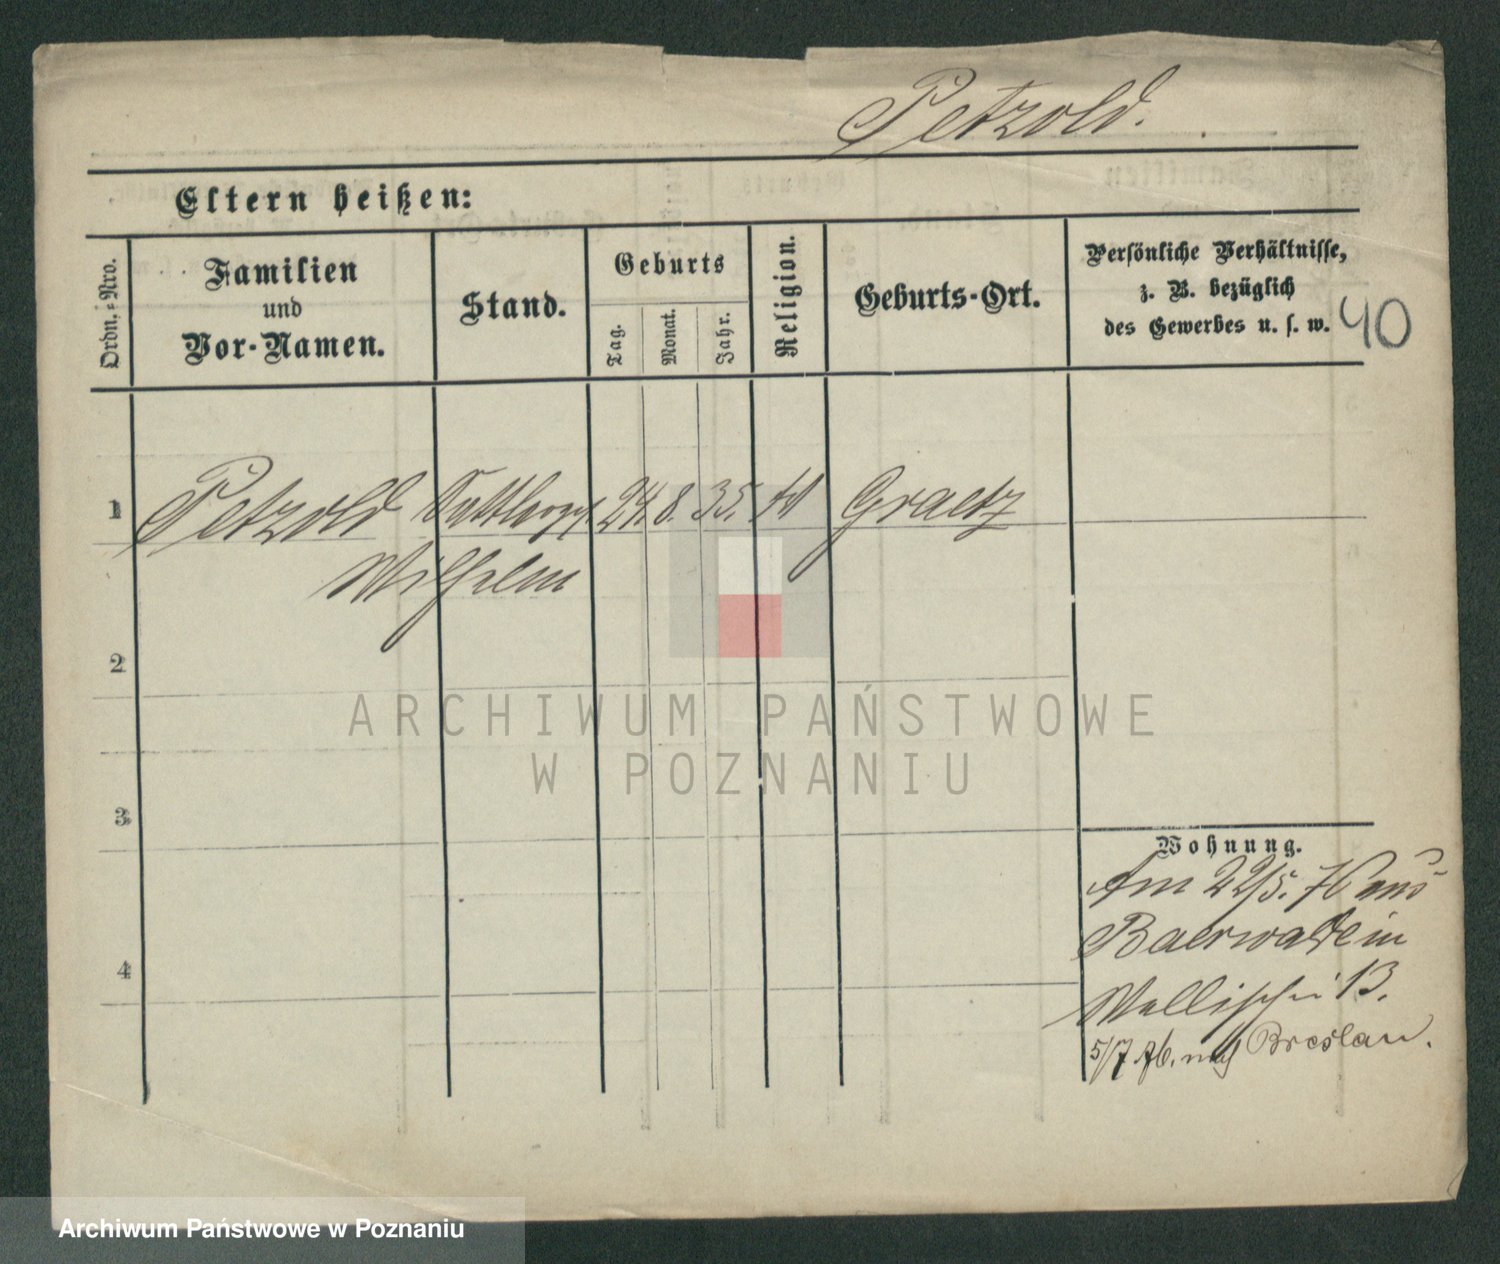 Petzold.
Eltern heißen:
Ordn.-Nro.
Familien
und
Vor-Namen.
Stand.
Geburts
Tag.
Monat.
Jahr.
Religion.
Geburts-Ort.
Persönliche Verhältnisse,
z. B. bezüglich
des Gewerbes u. s. w.
40
1 Petzold 24. 8. 35. Graetz
Wilhelm
2
3
4
Wohnung.
Am 22/5. Haus
Baerwald in
Wallischei 13.
5/7 76. nach Breslau.
ARCHIWUM PAŃSTWOWE
W POZNANIU
Archiwum Państwowe w Poznaniu